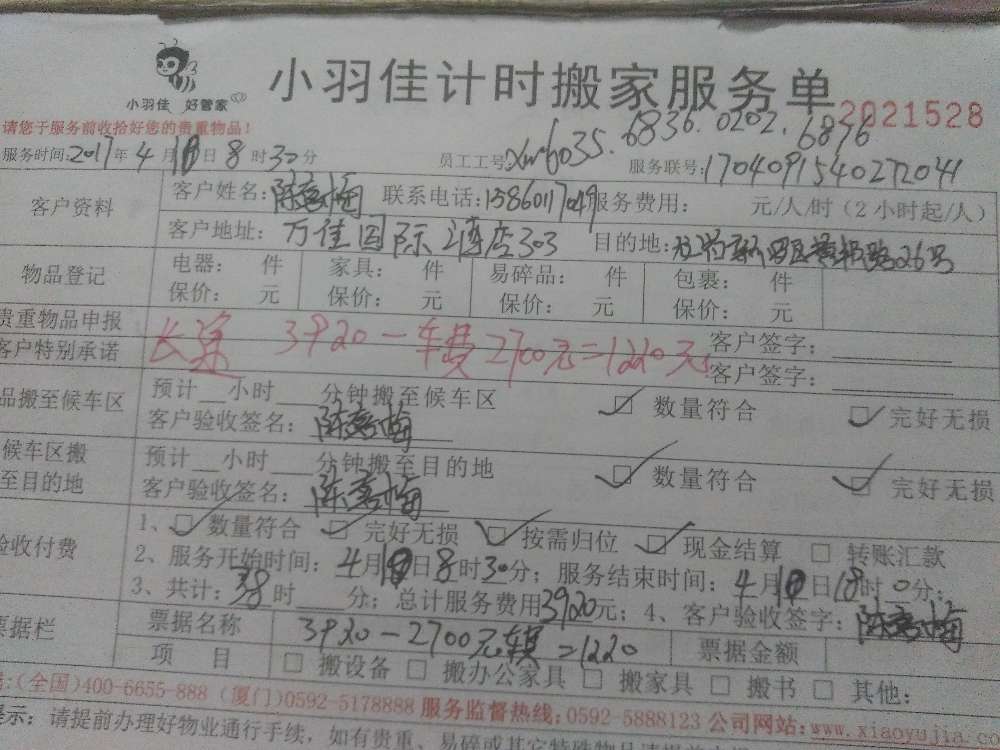 小羽佳 好管家
小羽佳计时搬家服务单
2021528
请您于服务前收拾好您的贵重物品!
服务时间:2017年4月10日8时30分 员工工号:xm6035.6836.0202.6896
服务联号:1704091540272041
客户资料 客户姓名: 联系电话:15860117049 服务费用: 元/人/时(2小时起/人)
客户地址:万佳国际酒店303 目的地:
物品登记 电器: 件 家具: 件 易碎品: 件 包裹: 件
保价: 元 保价: 元 保价: 元 保价: 元
贵重物品申报 客户签字:
客户特别承诺 长途 3920-车费2700元=1220元 客户签字:
品搬至候车区 预计__小时___分钟搬至候车区 数量符合 完好无损
客户验收签名:
候车区搬至目的地 预计__小时___分钟搬至目的地 数量符合 完好无损
客户验收签名:
验收付费 1、数量符合 完好无损 按需归位 现金结算 转账汇款
2、服务开始时间:4月10日8时30分;服务结束时间:4月10日18时0分;
3、共计:38时___分;总计服务费用3920元;4、客户验收签字:
票据栏 票据名称 3920-2700元车费=1220 票据金额
项 目 搬设备 搬办公家具 搬家具 搬书 其他:
:(全国)400-6655-888 (厦门)0592-5178888 服务监督热线:0592-5888123 公司网站:www.xiaoyujia.co
提示:请提前办理好物业通行手续,如有贵重、易碎或其它特殊物品请提前